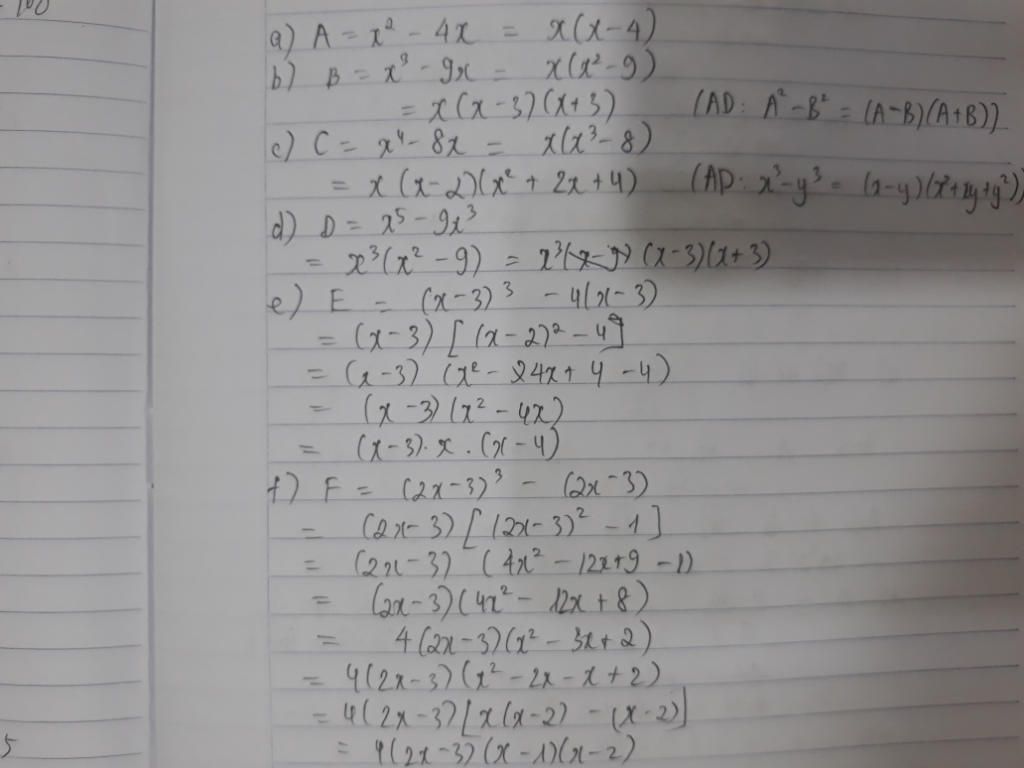 100
a) A = x² - 4x = x(x-4)
b) B = x³ - 9x = x(x²-9)
= x(x-3)(x+3) (AD: A²-B² = (A-B)(A+B))
c) C = x⁴ - 8x = x(x³-8)
= x(x-2)(x² + 2x + 4) (AD: x³-y³ = (x-y)(x²+xy+y²))
d) D = x⁵ - 9x³
= x³(x² - 9) = x³(x-9) (x-3)(x+3)
e) E = (x-3)³ - 4(x-3)
= (x-3) [(x-2)² - 4]
= (x-3) (x² - 24x + 4 - 4)
= (x-3)(x² - 4x)
= (x-3).x.(x-4)
f) F = (2x-3)³ - (2x-3)
= (2x-3) [(2x-3)² - 1]
= (2x-3) (4x² - 12x+9 - 1)
= (2x-3)(4x² - 12x + 8)
= 4(2x-3)(x² - 3x + 2)
= 4(2x-3)(x² - 2x - x + 2)
= 4(2x-3)[x(x-2) - (x-2)]
= 4(2x-3)(x-1)(x-2)
5